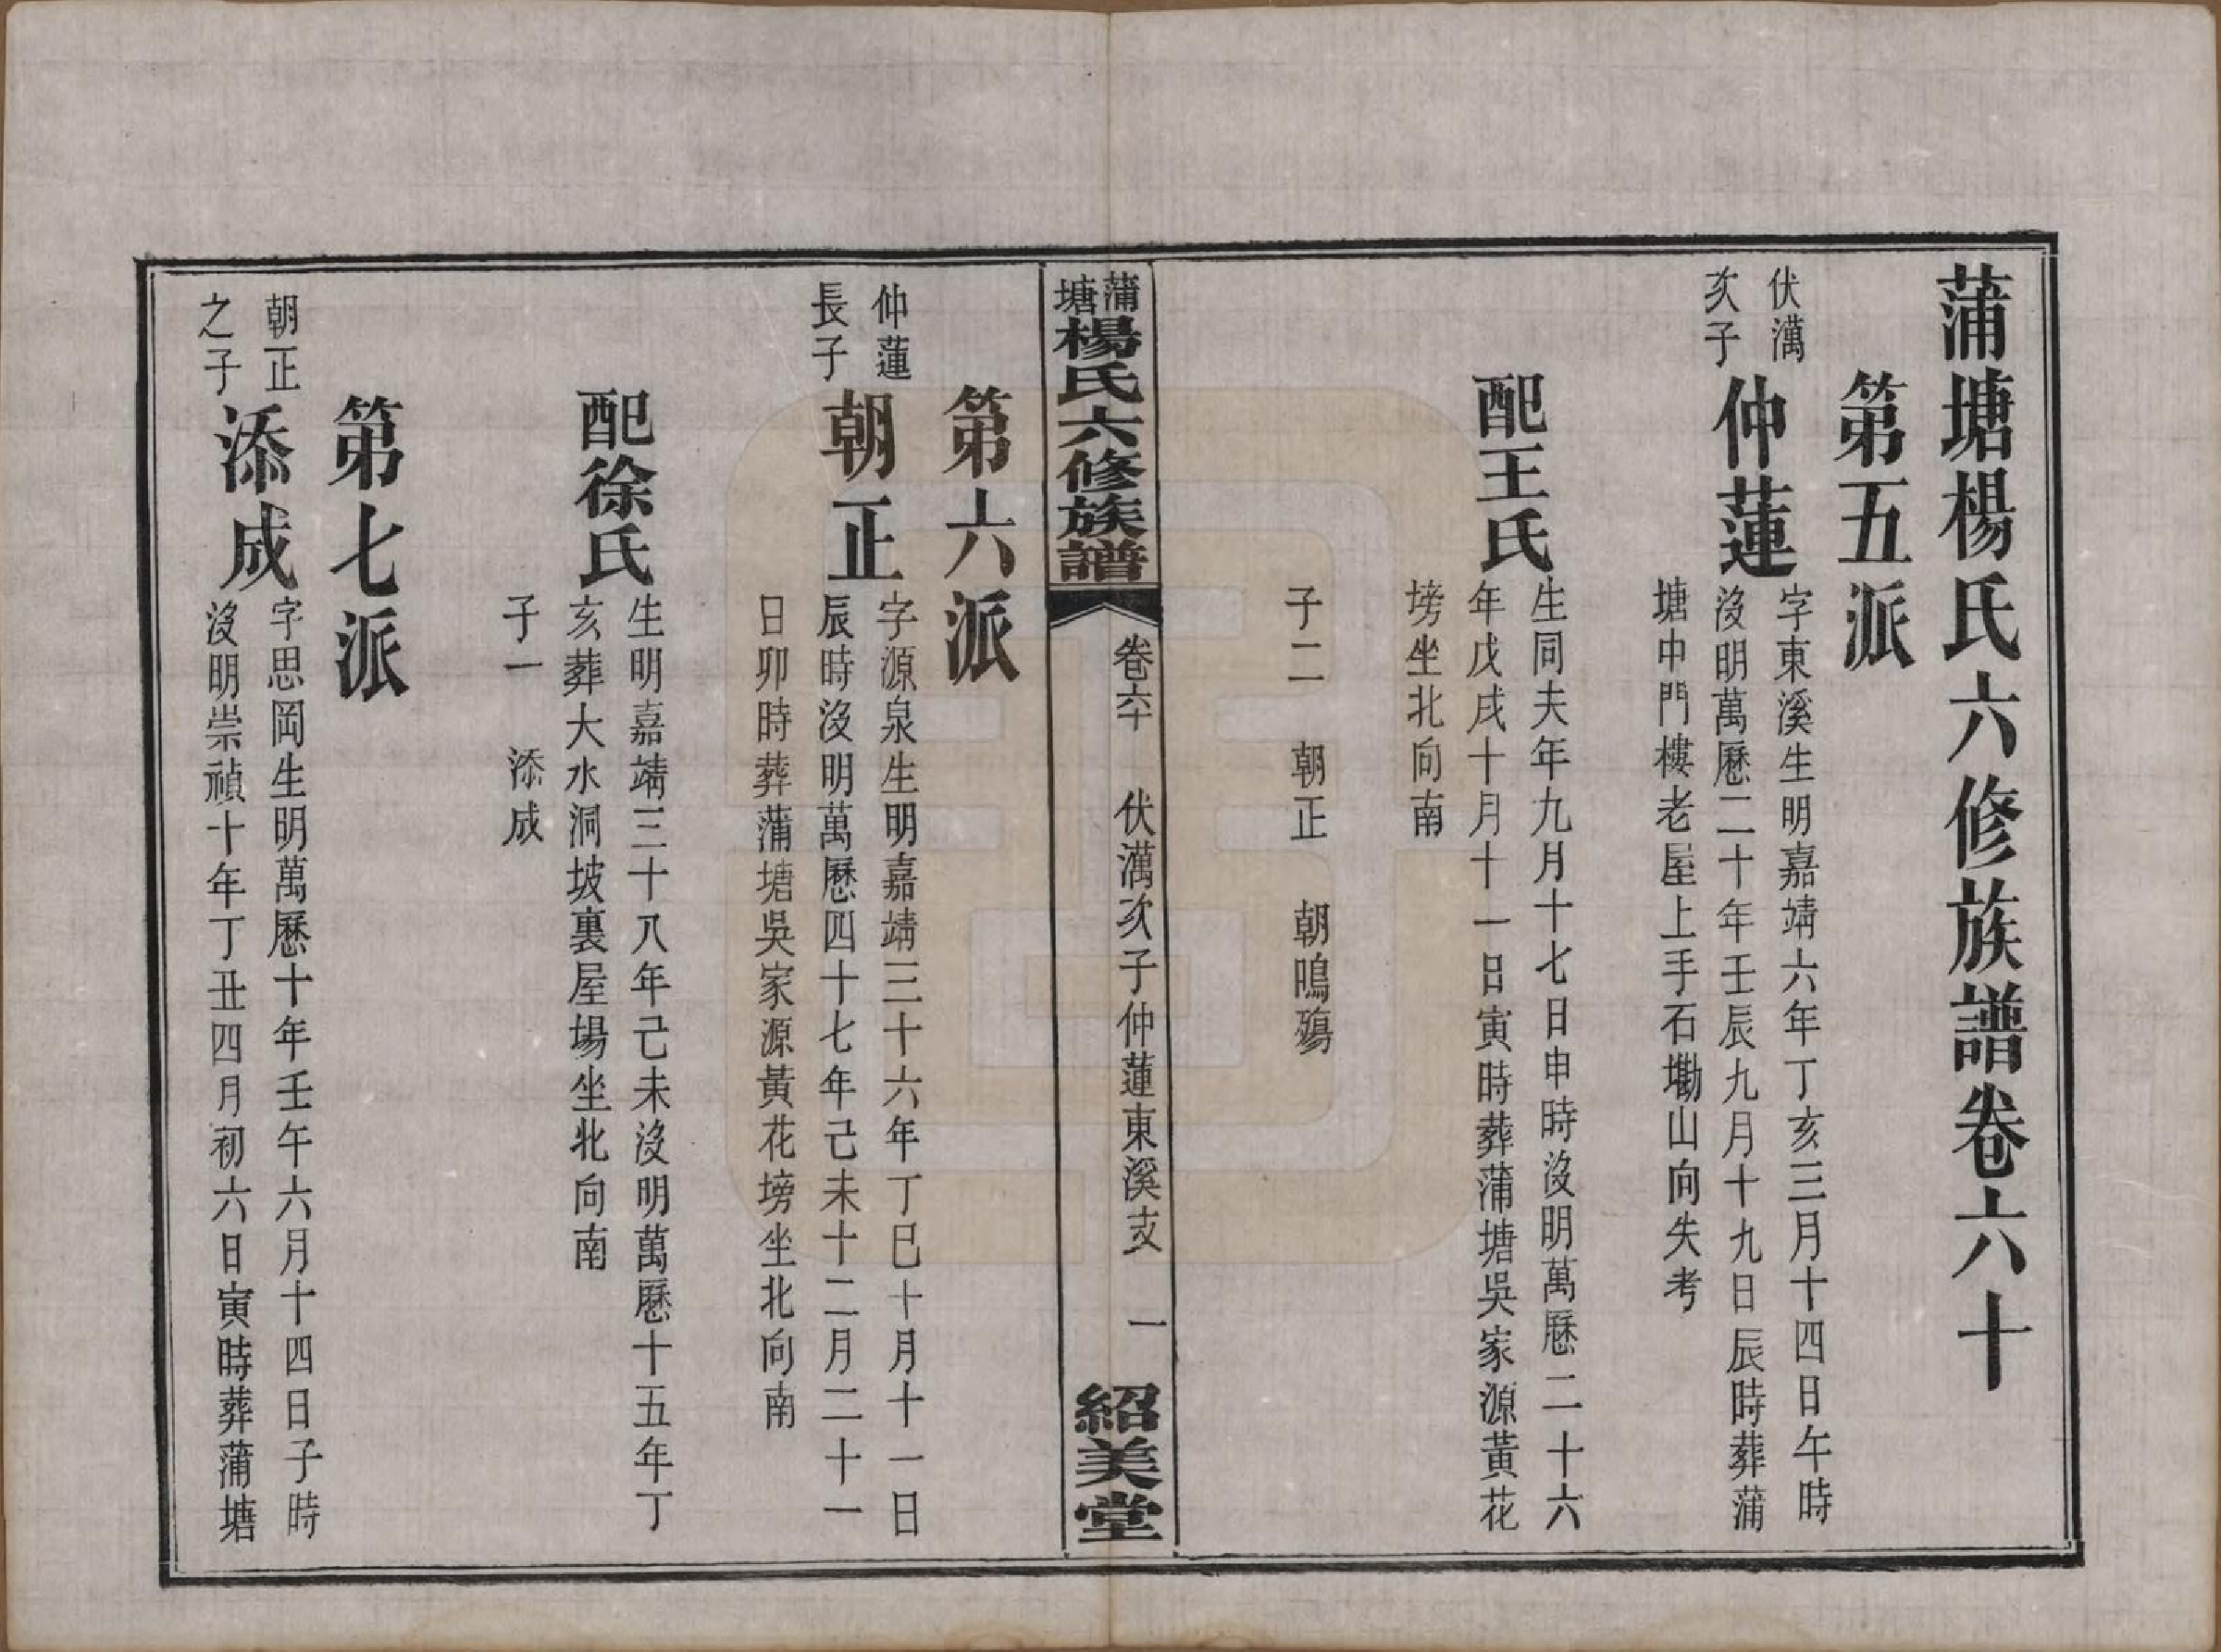 蒲塘楊氏六修族譜卷六十
第五派
伏澫
次子
仲蓮
字東溪生明嘉靖六年丁亥三月十四日午時
沒明萬曆二十年壬辰九月十九日辰時葬蒲
塘中門樓老屋上手石墈山向失考
配王氏
生同夫年九月十七日申時沒明萬曆二十六
年戊戌十月十一日寅時葬蒲塘吳家源黃花
塝坐北向南
子二 朝正 朝鳴殤
蒲塘楊氏六修族譜 卷六十 伏澫次子仲蓮東溪支 一 紹美堂
第六派
仲蓮
長子
朝正
字源泉生明嘉靖三十六年丁巳十月十一日
辰時沒明萬曆四十七年己未十二月二十一
日卯時葬蒲塘吳家源黃花塝坐北向南
配徐氏
生明嘉靖三十八年己未沒明萬曆十五年丁
亥葬大水洞坡裏屋場坐北向南
子一 添成
第七派
朝正
之子
添成
字思岡生明萬曆十年壬午六月十四日子時
沒明崇禎十年丁丑四月初六日寅時葬蒲塘